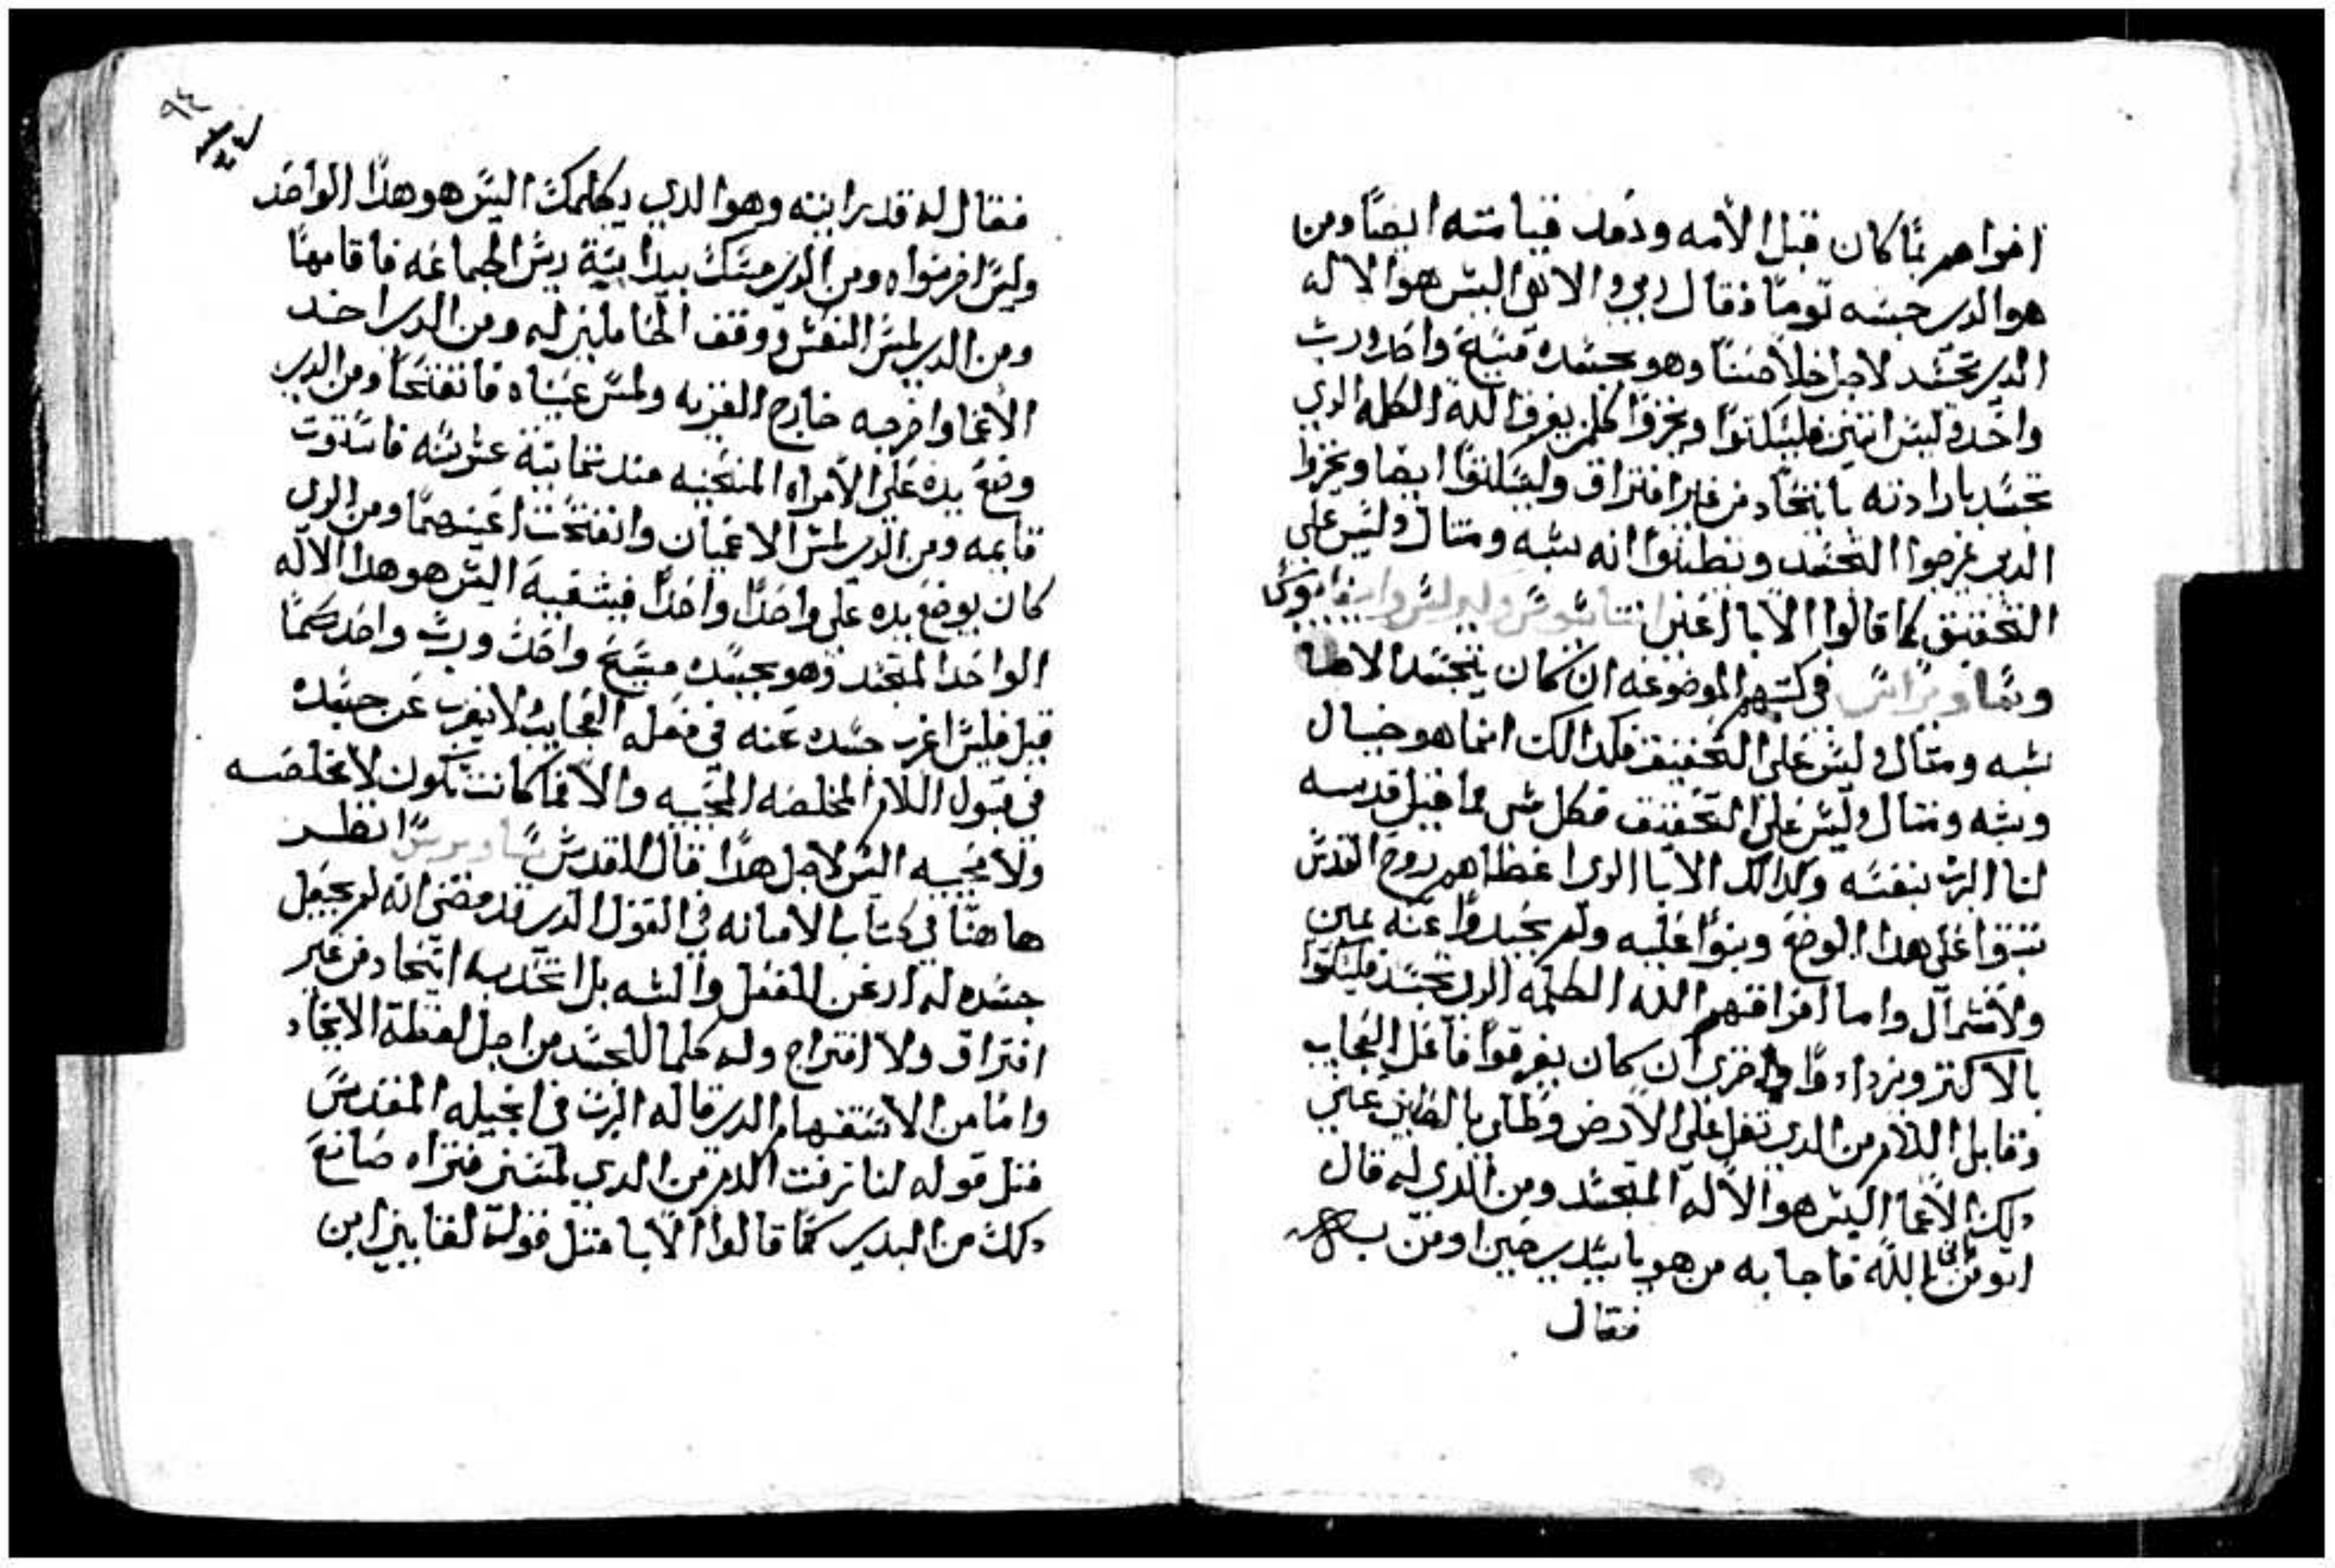 افواههم بما كان قبل الالامه وبعد قيامته ايضا ومن
هو الدي جسه توما فقال ربي والاهي اليس هو الاله
الدي تجسد لاجل خلاصنا وهو بجسده مسيح واحد ورب
واحد وليس اتنين فليسكتوا ويخزوا كلمن يفرق الله الكلمه الدي
تجسد بارادته باتحاد من غير افتراق وليسكتوا ايضا ويخزوا
الدين غرجوا التجسد ونطنوا انه شبه ومتال وليس على
التحقيق كما قالوا الابا اعني
في كتبهم الموضوعه ان كان تجسد الاهنا
شبه ومتال وليس على التحقيق فكدالك انما هو خيال
وشبه ومتال وليس على التحقيق فكل شي مما قبل قدسه
لنا الرب بنفسه وكدالك الابا الدي اعطاهم روح القدس
تبتوا على هدا الوضع وبنوا عليه ولم يحيدوا عنه يمين
ولا شمال واما افراقهم الله الكلمه الدي تجسد فليبكتوا
بالاكتر ويزدادوا خزي ان كان يفرقوا فاعل العجايب
وقابل الالام من الدي تفل على الارض وطلي بالطين عيني
دلك الاعما اليس هو الاله المتجسد ومن الدي له قال
اتومن بابن الله فاجابه من هو يا سيدي حتى اومن به
فقال
فقال له قد رايته وهو الدي يكلمك اليس هو هدا الواحد
وليس افرقواه ومن الدي مسك بيد ابنة ريس الجماعه فاقامها
ومن الدي لمس النعش ووقف الحاملين له ومن الدي اخد
الاعما واخرجه خارج القريه ولمس عيناه فانفتحا ومن الدي
وضع يده على الامراه المنحنيه مند تمانية عشر سنه فاستوت
قايمه ومن الدي لمس الاعميان وانفتحت اعينهما ومن الدي
كان يوضع يده على واحدا واحدا فيشفيه اليس هو هدا الاله
الواحد المتجسد وهو بجسده مسيح واحد ورب واحد كما
قيل فليس اغرب جسده عنه في فعله العجايب ولا يغرب عن جسده
في قبول الالام المخلصه المحييه والا فما كانت تكون لا مخلصه
ولا محييه اليس لاجل هدا قال القديس ساويرس انظر
هاهنا في كتاب الامانه في القول الدي قد مضى انه لم يجعل
جسده له ارغن للفعل والشبه بل اتحد به اتحاد من غير
افتراق ولا امتزاج وله كلما للجسد من اجل لفظة الاتحاد
واما من الاستفهام الدي قاله الرب في انجيله المقدس
متل قوله لنا نزفت الدم من الدي لمسني فتراه صانع
دلك من البدي كما قالوا الابا متل قوله لقايين اين